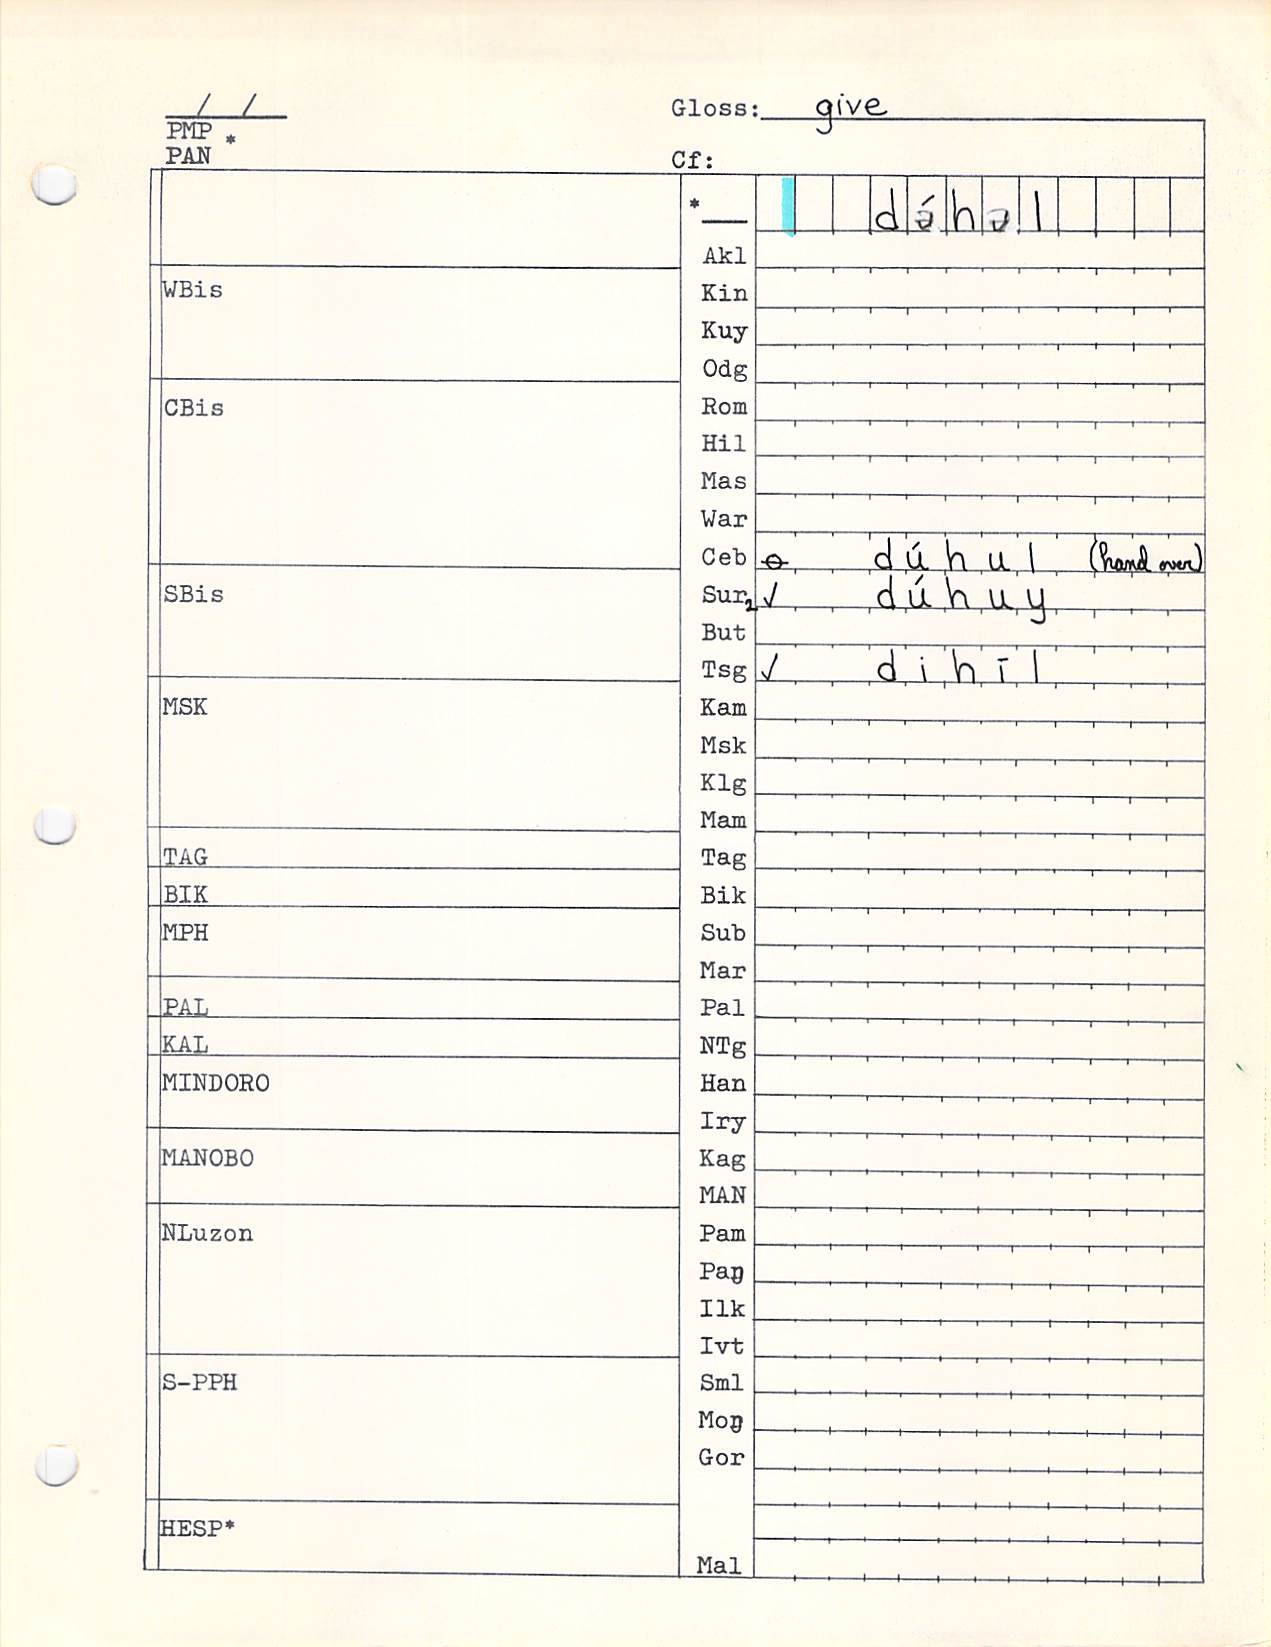 / /
Gloss: give
PMP *
PAN
Cf:
*___ də́həl
Akl
WBis
Kin
Kuy
Odg
CBis
Rom
Hil
Mas
War
Ceb ⊖ dúhul (hand over)
SBis
Sur2 ✓ dúhuy
But
Tsg ✓ dihīl
MSK
Kam
Msk
Klg
Mam
TAG
Tag
BIK
Bik
MPH
Sub
Mar
PAL
Pal
KAL
NTg
MINDORO
Han
Iry
MANOBO
Kag
MAN
NLuzon
Pam
Paŋ
Ilk
Ivt
S-PPH
Sml
Moŋ
Gor
HESP*
Mal